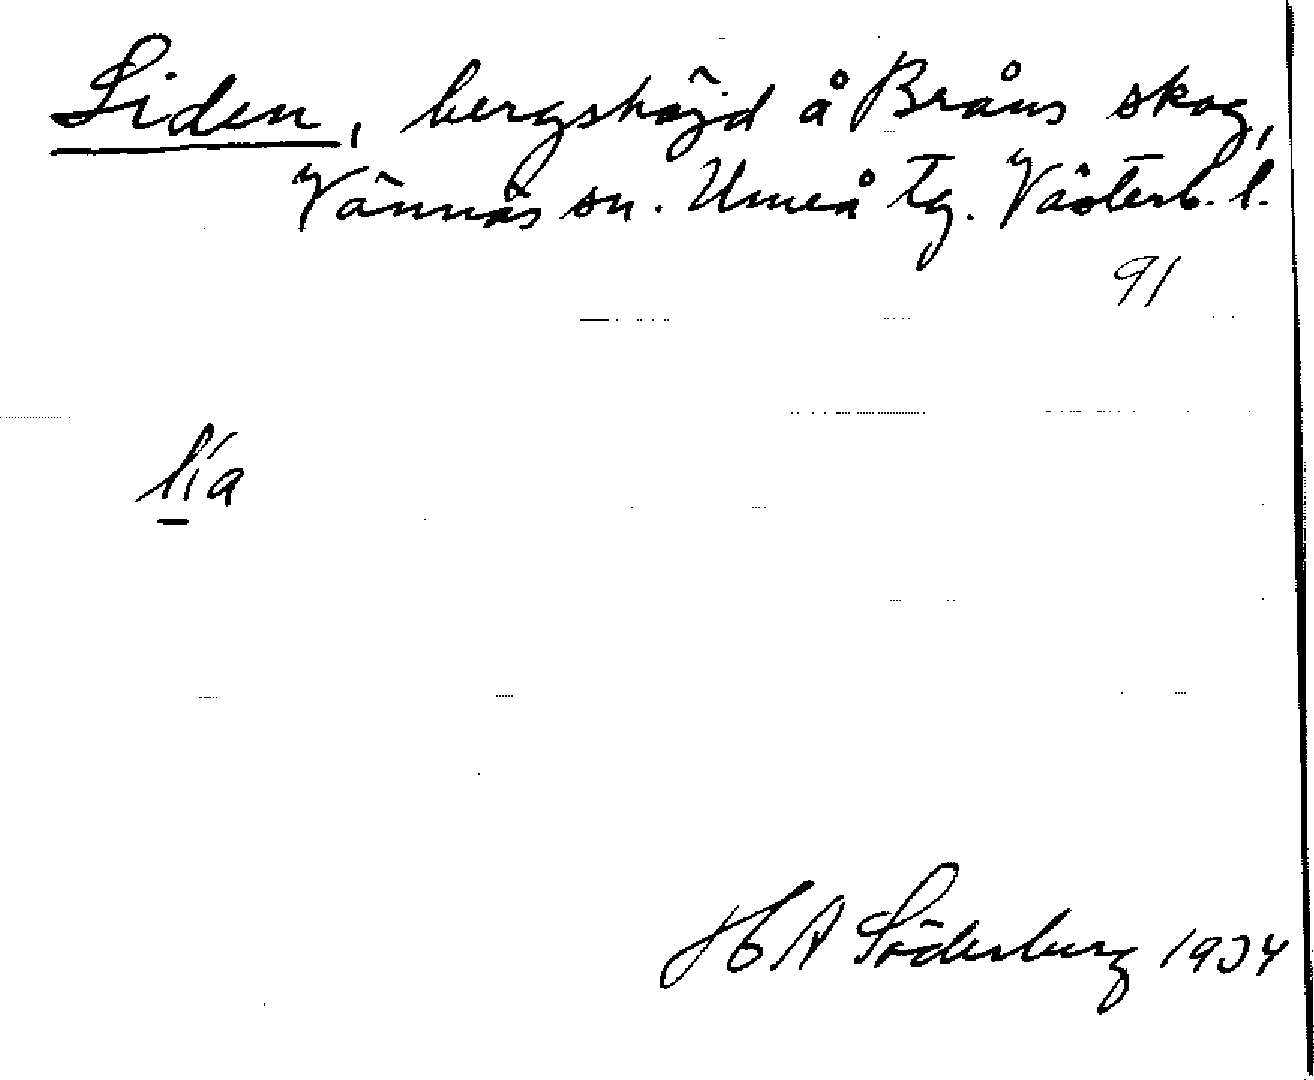 Liden, bergshöjd å Bråns skog,
Vännäs sn. Umeå tg. Västerb. l.
91
lı́a
H A Söderberg 1934